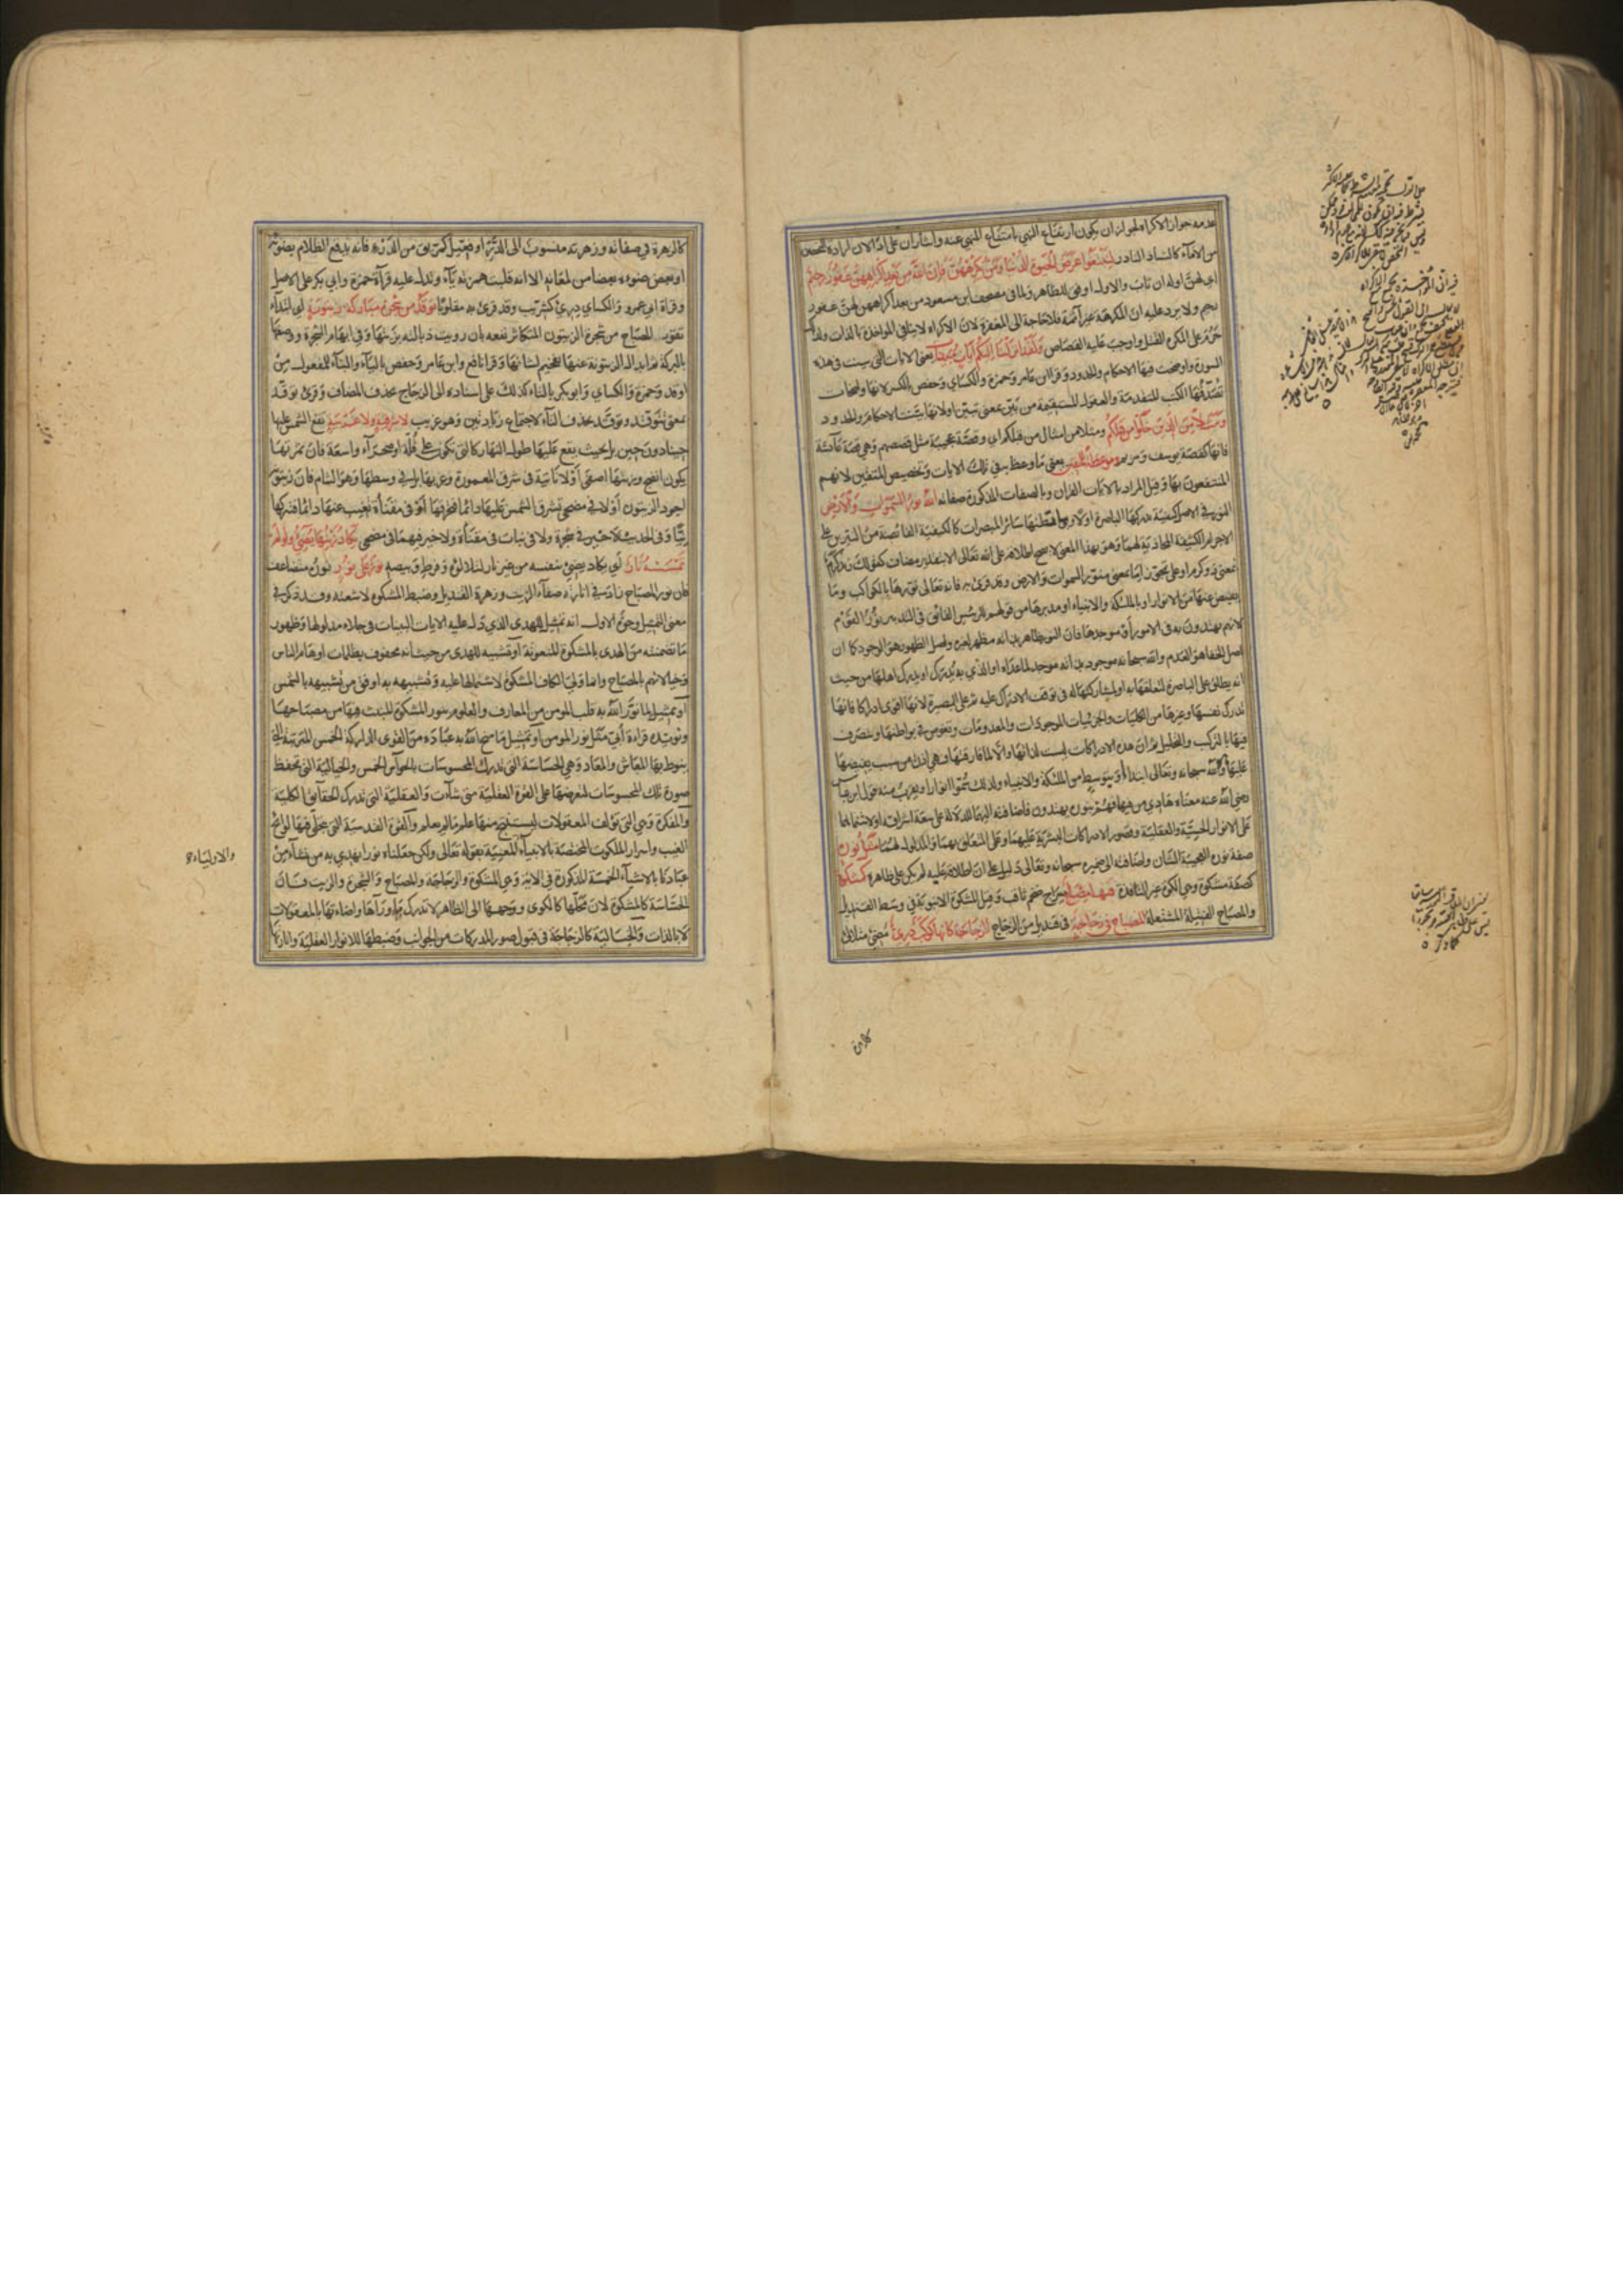 عدمه جواز الاكراه لجواز ان يكون ارتفاع النهي بامتناع المنهي عنه وايثار ان على اذا لان ارادة التحصن
من الاماء كالشاذ النادر لتبتغوا عرض الحيوة الدنيا ومن يكرههن فان الله من بعد اكراههن غفور رحيم
اي لهن اوله ان تاب والاول اوفق للظاهر ولما في مصحف ابن مسعود من بعد اكراههن لهن غفور
رحيم ولا يرد عليه ان المكرهة غير اثمة فلا حاجة الى المغفرة لان الاكراه لا ينافي المواخذة بالذات ولذلك
حرم على المكره القتل واوجب عليه القصاص ولقد انزلنا اليكم ايات مبينات يعني الايات التي بينت في هذه
السورة واوضحت فيها الاحكام والحدود وقرا ابن عامر وحمزة والكسائي وحفص بالكسر لانها واضحات
تصدقها الكتب المتقدمة والعقول المستقيمة من بين بمعنى تبين او لانها بينت الاحكام والحدود
ومثلا من الذين خلوا من قبلكم ومثلا من امثال من قبلكم اي وقصة عجيبة مثل قصصهم وهي قصة عائشة
فانها كقصة يوسف ومريم وموعظة للمتقين يعني ما وعظ به في تلك الايات وتخصيص المتقين لانهم
المنتفعون بها وقيل المراد بالايات القران وبالصفات المذكورة صفاته الله نور السموات والارض
النور في الاصل كيفية تدركها الباصرة اولا وبواسطتها سائر المبصرات كالكيفية الفائضة من النيرين على
الاجرام الكثيفة المحاذية لهما وهو بهذا المعنى لا يصح اطلاقه على الله تعالى الا بتقدير مضاف كقولك زيد كرم
بمعنى ذو كرم او على تجوز اما بمعنى منور السموات والارض وقد قرئ به فانه تعالى نورها بالكواكب وما
يفيض عنها من الانوار او بالملئكة والانبياء او مدبرها من قولهم للرئيس الفائق في التدبير نور القوم
لانهم يهتدون به في الامور او موجدها فان النور ظاهر بذاته مظهر لغيره واصل الظهور هو الوجود كما ان
اصل الخفا هو العدم والله سبحانه موجود بذاته موجد لما عداه او الذي به يدرك او يدرك اهلها من حيث
انه يطلق على الباصرة لتعلقها به او لمشاركتها له في توقف الادراك عليه ثم على البصيرة لانها اقوى ادراكا فانها
تدرك نفسها وغيرها من الكليات والجزئيات الموجودات والمعدومات وتغوص في بواطنها وتتصرف
فيها بالتركيب والتحليل ثم ان هذه الادراكات ليست لذاتها والا لما فارقتها فهي اذن من سبب يفيضها
عليها وهو الله سبحانه وتعالى ابتداء او بتوسط من الملئكة والانبياء ولذلك سموا انوارا ويقرب منه قول ابن عباس
رضي الله عنه معناه هادي من فيها فهم بنوره يهتدون فاضافته اليها للدلالة على سعة اشراقه او لاشتمالها
على الانوار الحسية والعقلية وقصور الادراكات البشرية عليهما وعلى المتعلق بهما والمدلول لهما مثل نوره
صفة نوره العجيبة الشان واضافته الى ضميره سبحانه وتعالى دليل على ان اطلاقه عليه لم يكن على ظاهره كمشكوة
كصفة مشكوة وهي الكوة غير النافذة فيها مصباح سراج ضخم ثاقب وقيل المشكوة الانبوبة في وسط القنديل
والمصباح الفتيلة المشتعلة المصباح في زجاجة في قنديل من الزجاج الزجاجة كانها كوكب دري مضئ متلالئ
كالزهرة
كالزهرة في صفائه وزهرته منسوب الى الدر او فعيل كمريق من الدرء فانه يدفع الظلام بضوئه
او بعض ضوءه بعضا من لمعانه الا انه قلبت همزته ياء ويدل عليه قراءة حمزة وابي بكر على الاصل
وقراة ابي عمرو والكسائي درئ كشريب وقد قرئ به مقلوبا توقد من شجرة مباركة زيتونة اي ابتداء
ثقوب المصباح من شجرة الزيتون المتكاثر نفعه بان رويت ذبالته بزيتها وفي ابهام الشجرة ووصفها
بالبركة ثم ابدال الزيتونة عنها تفخيم لشانها وقرا نافع وابن عامر وحفص بالياء والبناء للمفعول من
اوقد وحمزة والكسائي وابو بكر بالتاء كذلك على اسناده الى الزجاج بحذف المضاف وقرئ توقد
بمعنى تتوقد ويوقد بحذف التاء لاجتماع زيادتين وهو غريب لا شرقية ولا غربية تقع الشمس عليها
حينا دون حين بل بحيث يقع عليها طول النهار كالتي تكون على قلة او صحراء واسعة فان ثمرتها
يكون انضج وزيتها اصفى او لا نابتة في شرق المعمورة وغربها بل في وسطها وهو الشام فان زيتونه
اجود الزيتون او لا في مضحى تشرق الشمس عليها دائما فتحرقها او في مقناة تغيب عنها دائما فتتركها
نيا وفي الحديث لا خير في شجرة ولا في نبات في مقناة ولا خير فيهما في مضحى يكاد زيتها يضئ ولو لم
تمسسه نار اي يكاد يضئ بنفسه من غير نار لتلالؤه وفرط وبيصه نور على نور نور متضاعف
فان نور المصباح زاد في انارته صفاء الزيت وزهرة القنديل وضبط المشكوة لاشعته وقد ذكر في
معنى التمثيل وجوه الاول انه تمثيل للهدى الذي دل عليه الايات البينات في جلاء مدلولها وظهور
ما تضمنته من الهدى بالمشكوة المنعوتة او تشبيه للهدى من حيث انه محفوف بظلمات اوهام الناس
وخيالاتهم بالمصباح وانما ولي الكاف المشكوة لاشتمالها عليه وتشبيهه به اوفق من تشبيهه بالشمس
او تمثيل لما نور الله به قلب المومن من المعارف والعلوم بنور المشكوة المنبث فيها من مصباحها
ويؤيده قراءة ابي مثل نور المومن او تمثيل ما منح الله به عباده من القوى الدراكة الخمس المترتبة التي
ينوط بها المعاش والمعاد وهي الحساسة التي تدرك المحسوسات بالحواس الخمس والخيالية التي تحفظ
صورة تلك المحسوسات لتعرضها على القوة العقلية متى شاءت والعقلية التي تدرك الحقائق الكلية
والمفكرة وهي التي تؤلف المعقولات ليستنتج منها علم ما لم يعلم والقوة القدسية التي يتجلى فيها لوائح
الغيب واسرار الملكوت المختصة بالانبياء المعنية بقوله تعالى ولكن جعلناه نورا يهدي به من نشاء من
والاولياء
عبادنا بالاشياء الخمسة المذكورة في الاية وهي المشكوة والزجاجة والمصباح والشجرة والزيت فان
الحساسة كالمشكوة لان محلها كالكوى ووجهها الى الظاهر لا تدرك ما وراءها واضاءتها بالمعقولات
لا بالذات والخيالية كالزجاجة في قبول صور المدركات من الجوانب وضبطها للانوار العقلية وانارتها